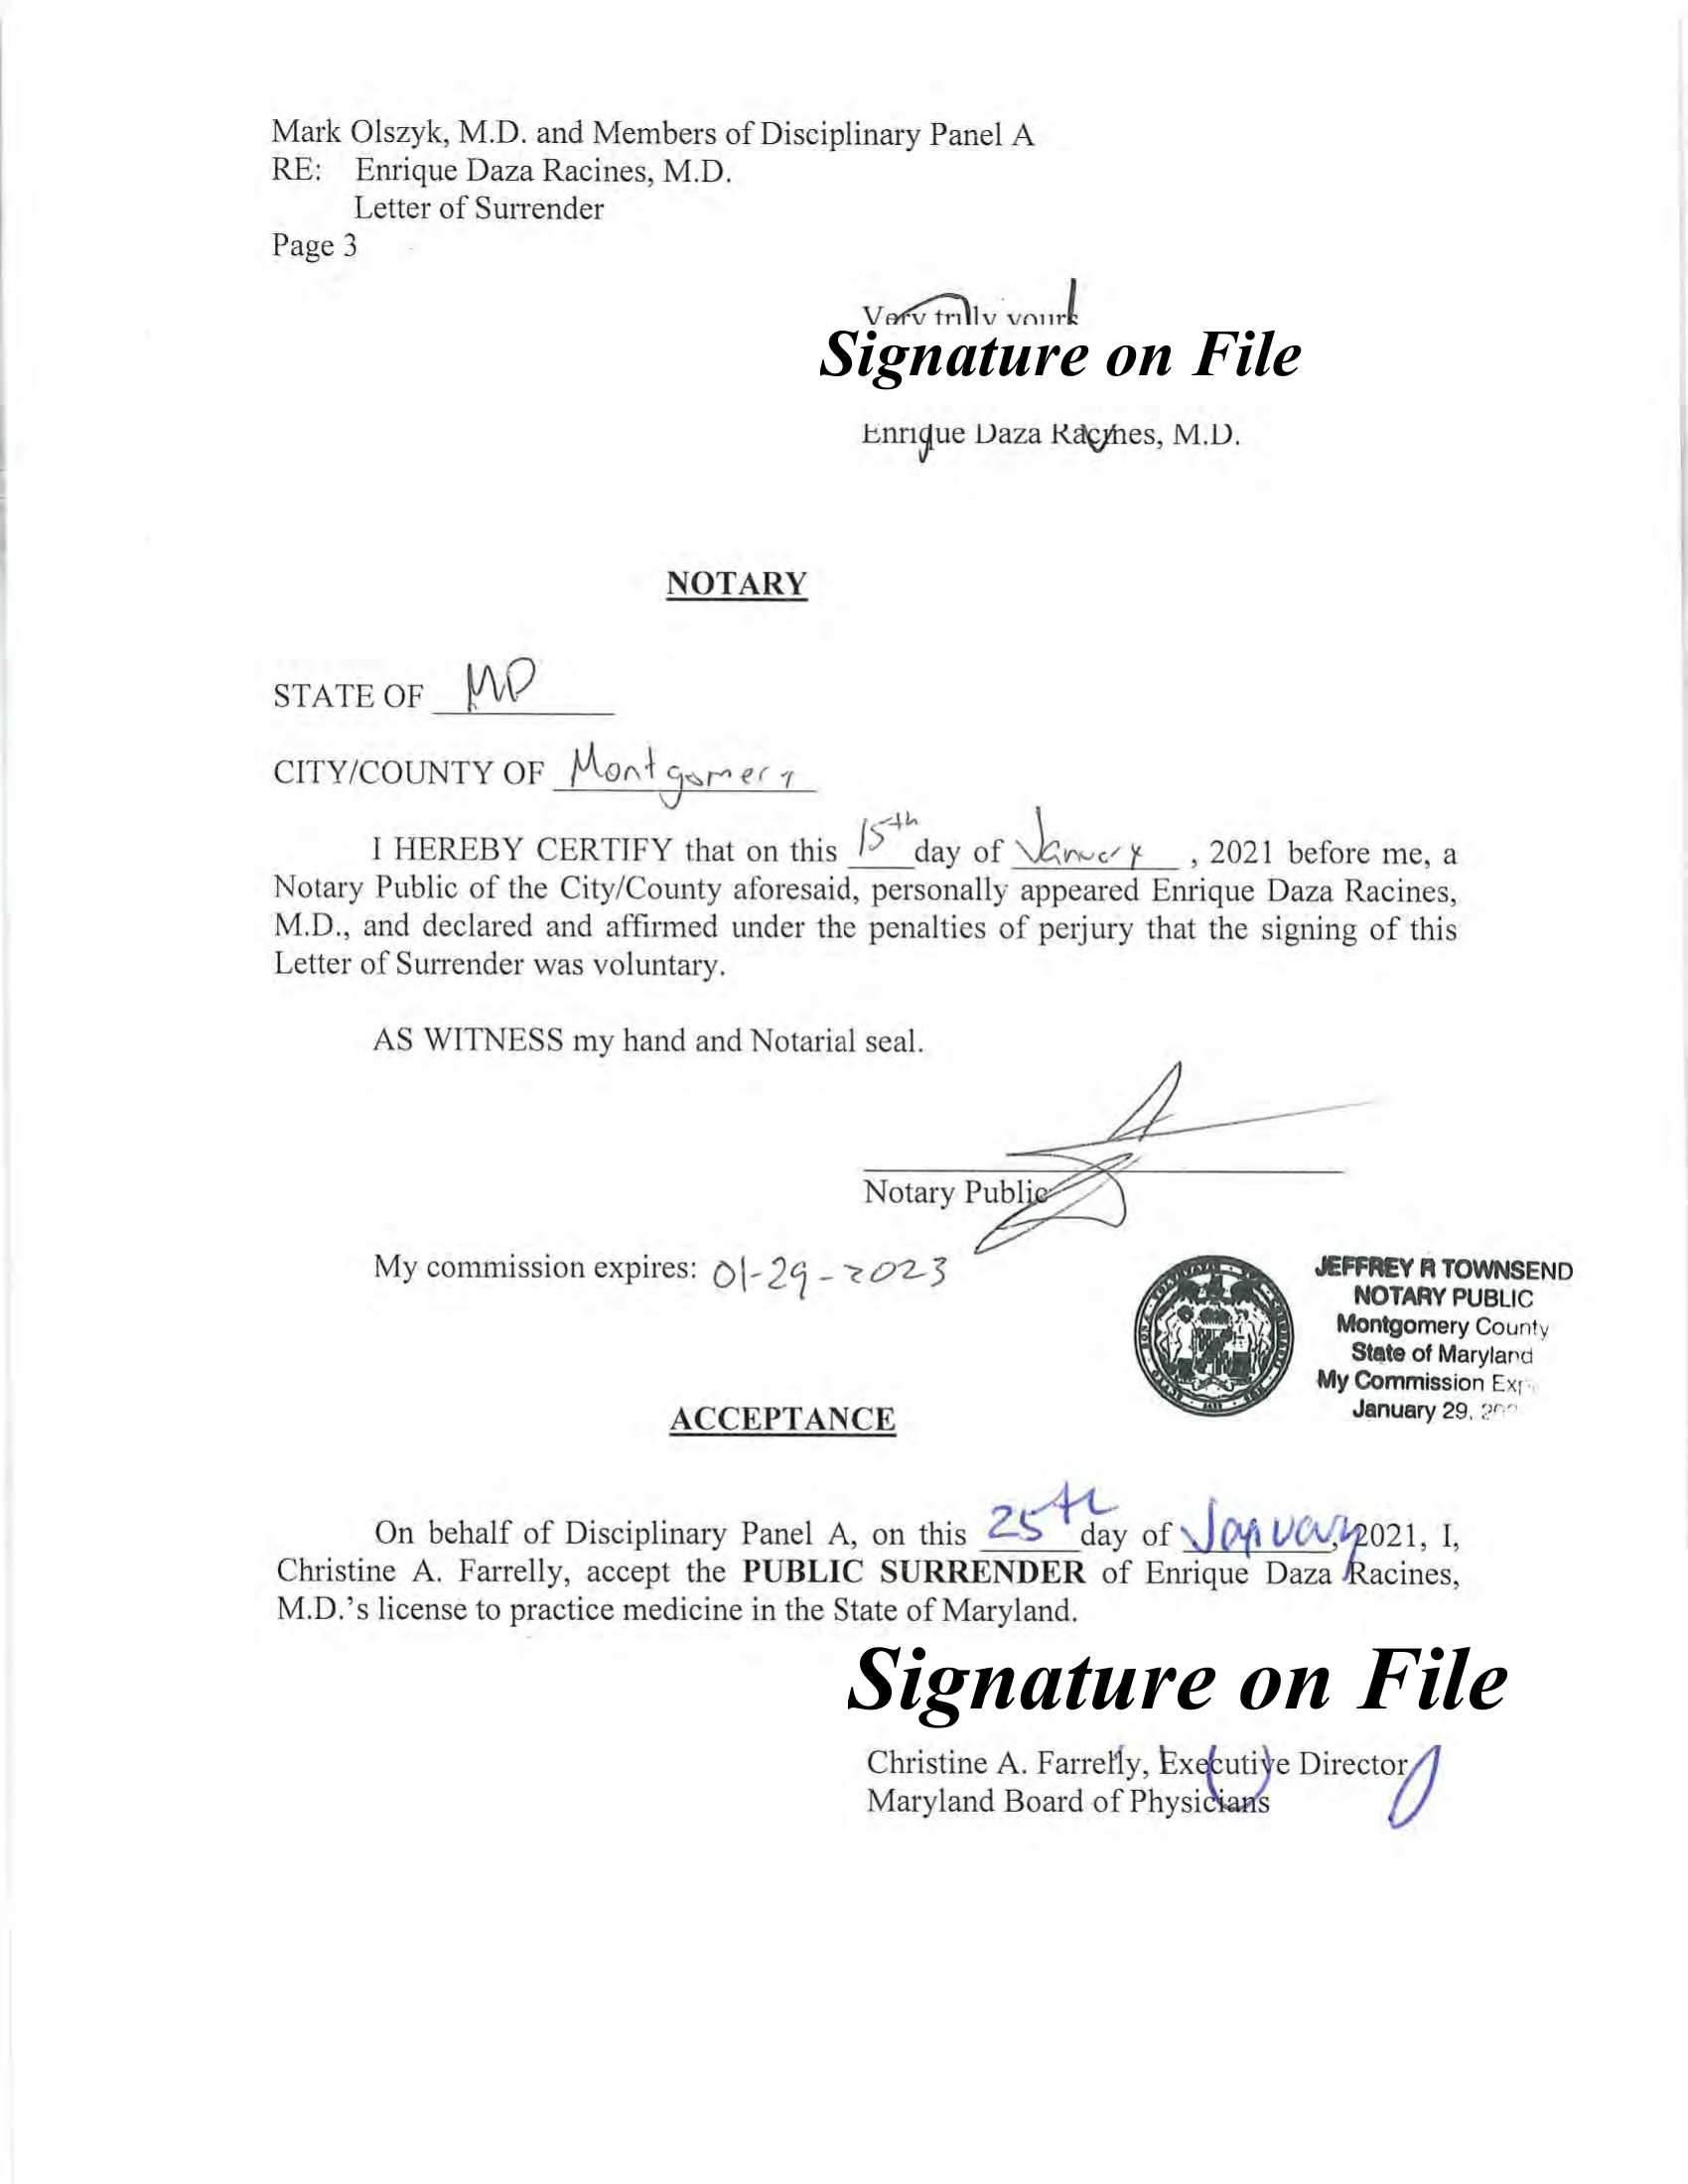 Mark Olszyk, M.D. and Members of Disciplinary Panel A
RE: Enrique Daza Racines, M.D.
Letter of Surrender
Page 3
Very truly yours
Signature on File
Enrique Daza Racines, M.D.
NOTARY
STATE OF MD
CITY/COUNTY OF Montgomery
I HEREBY CERTIFY that on this 15th day of January, 2021 before me, a
Notary Public of the City/County aforesaid, personally appeared Enrique Daza Racines,
M.D., and declared and affirmed under the penalties of perjury that the signing of this
Letter of Surrender was voluntary.
AS WITNESS my hand and Notarial seal.
Notary Public
My commission expires: 01-29-2023
JEFFREY R TOWNSEND
NOTARY PUBLIC
Montgomery County
State of Maryland
My Commission
January 29,
ACCEPTANCE
On behalf of Disciplinary Panel A, on this 25th day of January, 2021, I,
Christine A. Farrelly, accept the PUBLIC SURRENDER of Enrique Daza Racines,
M.D.'s license to practice medicine in the State of Maryland.
Signature on File
Christine A. Farrelly, Executive Director
Maryland Board of Physicians